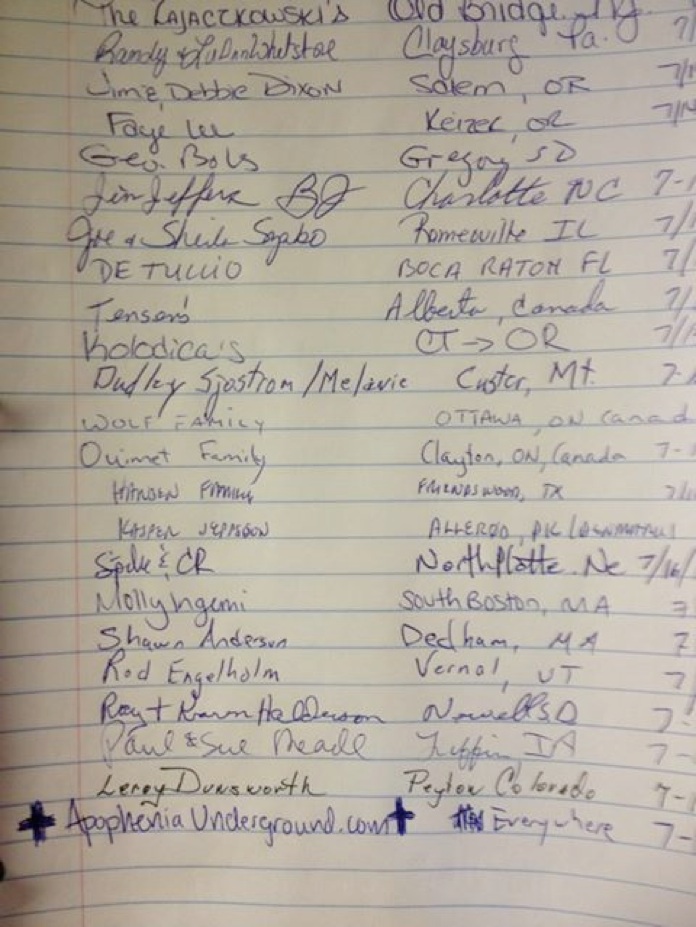 The Kajaczkowski's Old Bridge, NJ. 7/
Randy & LuAnn Whetstone Claysburg Pa. 7/
Jim & Debbie Dixon Salem, OR 7/1
Faye Lee Keizer, OR 7/14
Geo. Bols Gregory SD
Jim Jeffers Charlotte NC 7-1
Joe & Sheila Sopko Romeoville IL 7/1
DETULLIO BOCA RATON FL 7/1
Tensen's Alberta, Canada 7/1
Kolodica's CT → OR 7/1
Dudley Sjostrom / Melanie Custer, Mt. 7-1
WOLF FAMILY OTTAWA, ON Canad
Ouimet Family Clayton, ON, Canada 7-1
HANSEN FAMILY FRIENDSWOOD, TX 7/1
KASPER JEPPSSON ALLERØD, DK
Spike & CR North Platte. Ne 7/16/
Molly Ingemi SOUTH BOSTON, MA 7
Shawn Anderson Dedham, MA 7
Rod Engelholm Vernal, UT 7/
Ray + Karen Halderson Newell SD 7-
Paul & Sue Meade Tiffin IA 7-
Leroy Dunsworth Peyton Colorado 7-1
Apophenia Underground.com Everywhere 7-